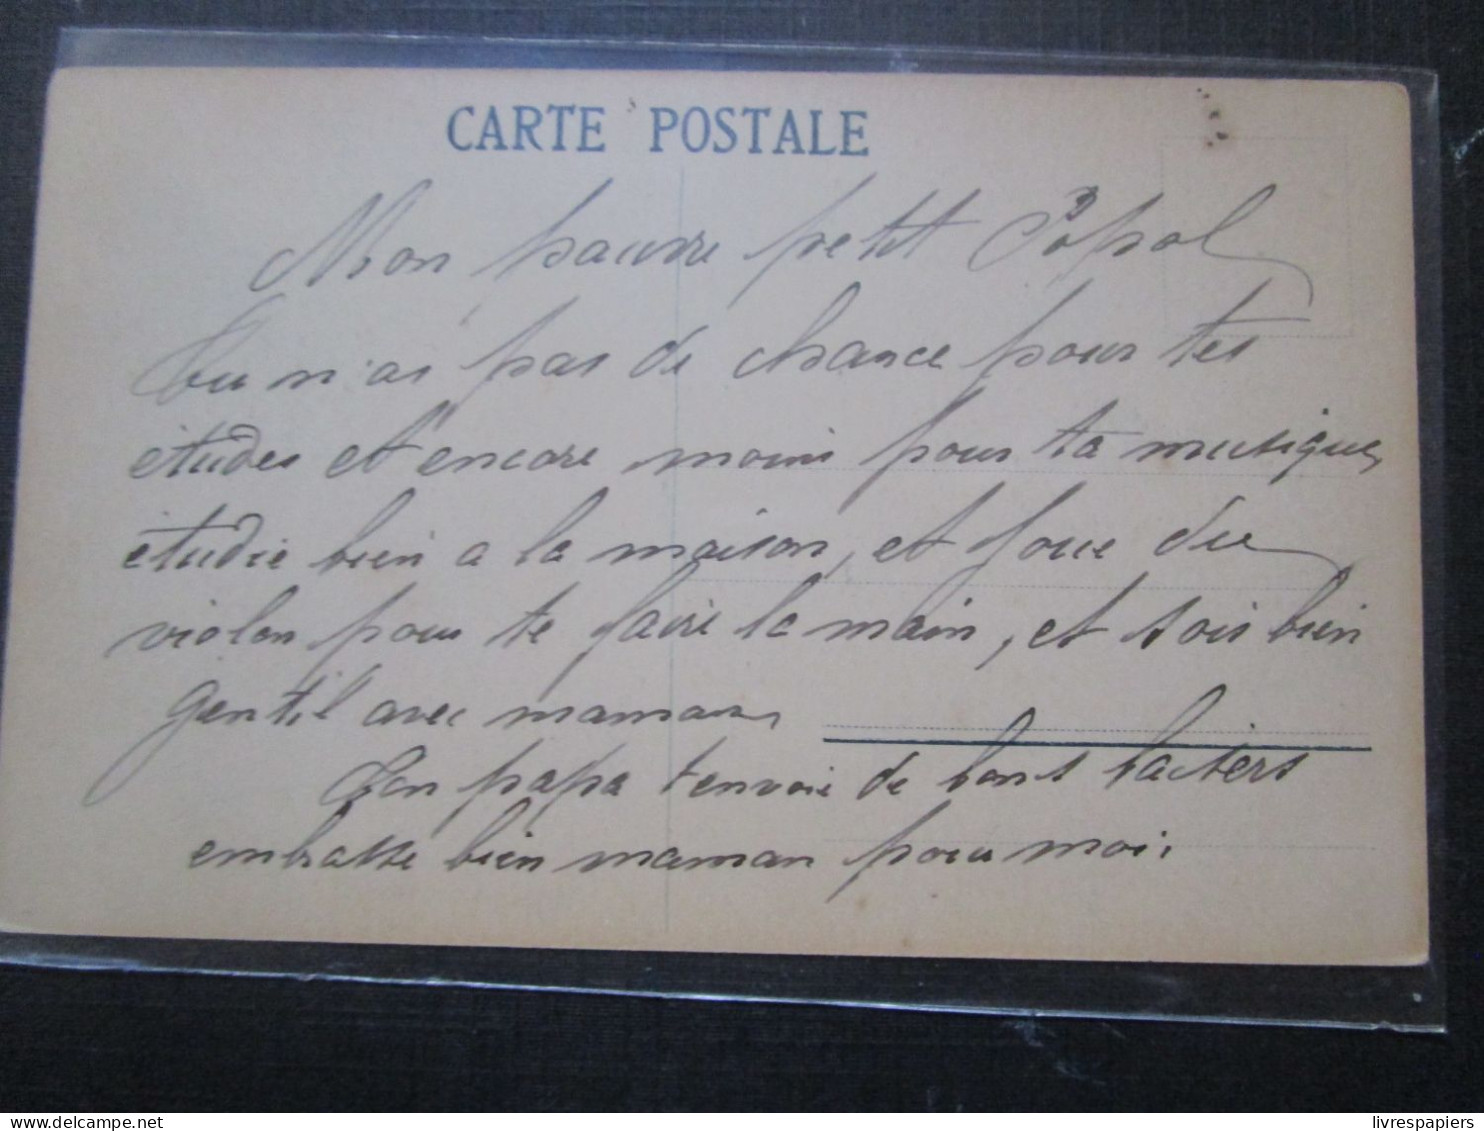 CARTE POSTALE
Mon pauvre petit Popol
Tu n'as pas de chance pour tes
études et encore moins pour ta musique,
étudie bien a la maison, et joue du
violon pour te faire la main, et sois bien
gentil avec maman,
Ton papa t'envoie de bons baisers
embrasse bien maman pour moi.
livrespapiers
delcampe.net